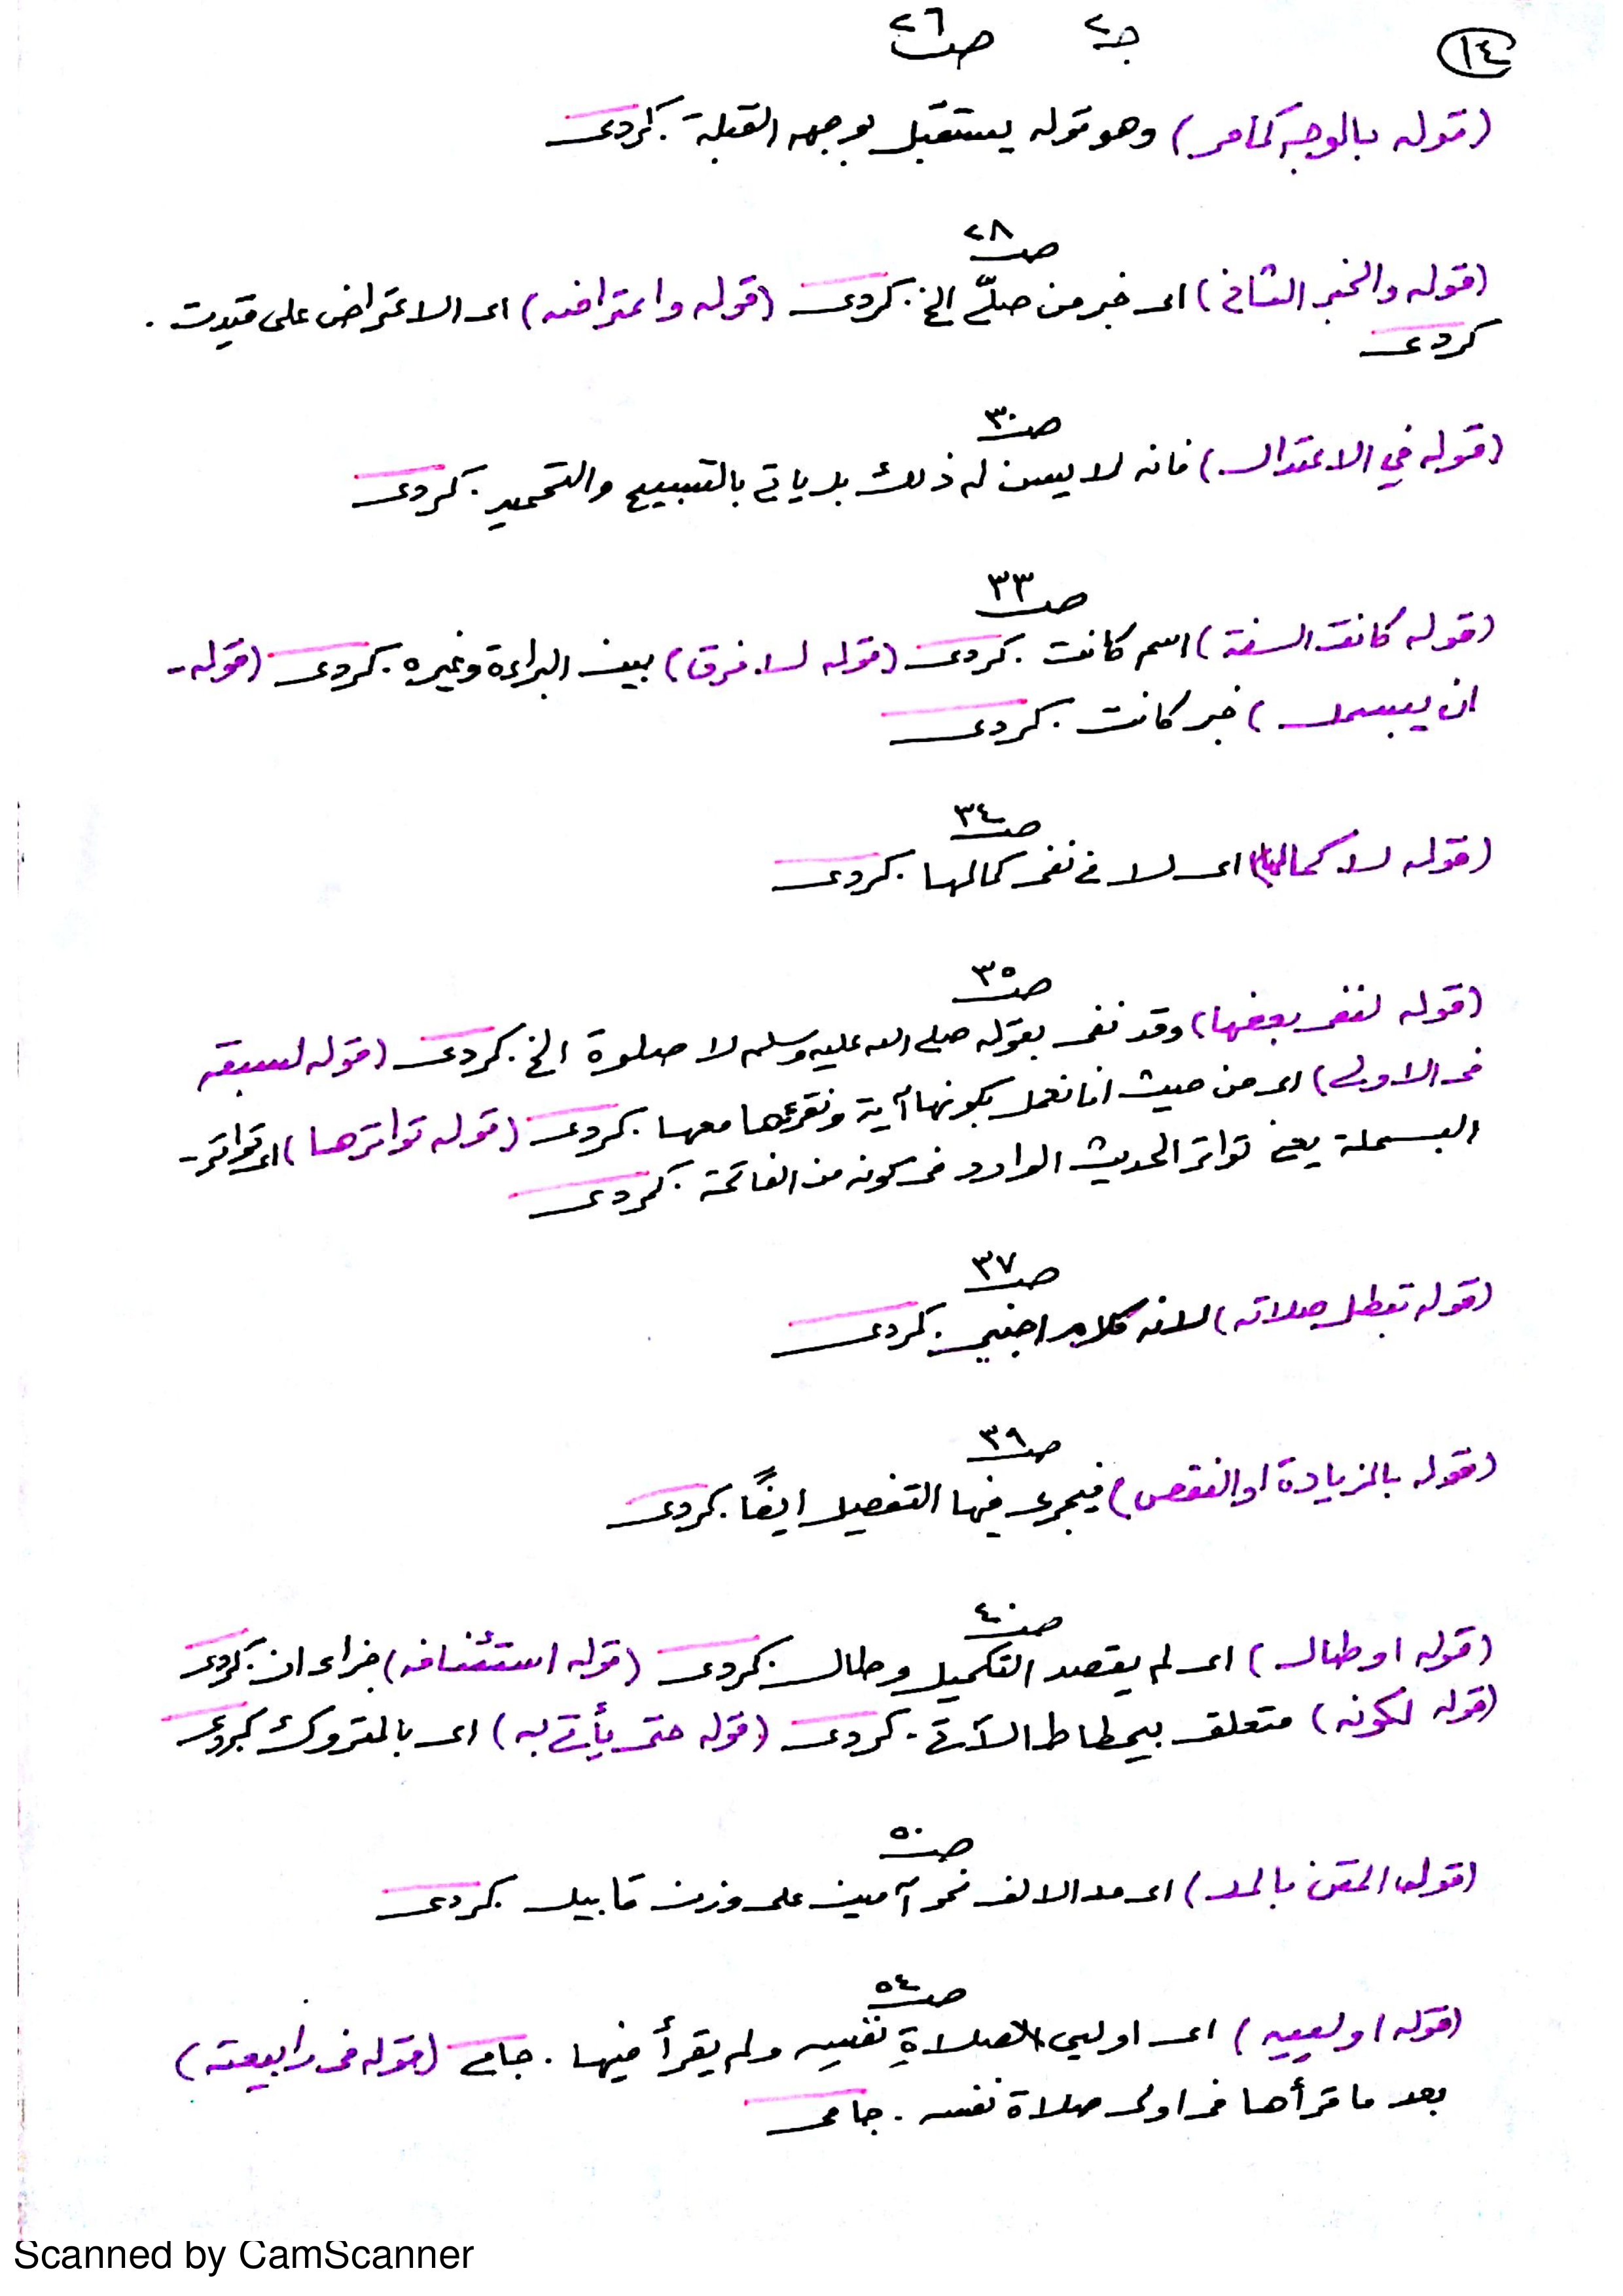 ١٤
جـ٢ صـ٢٦
(قوله بالوجه كما مر) وهو قوله يستقبل بوجهه القبلة. كردى
صـ٢٨
(قوله والخبر الثانى) اى خبر من صلّى الخ. كردى (قوله واعتراضه) اى الاعتراض على قيدت.
كردى
صـ٣٠
(قوله في الاعتدال) فانه لا يسن له ذلك بل ياتى بالتسبيح والتحميد. كردى
صـ٣٣
(قوله كانت السنة) اسم كانت. كردى (قوله لا فرق) بين البراءة وغيره. كردى (قوله -
ان يبسمل) خبر كانت. كردى
صـ٣٤
(قوله لا كمالها) اى لا فى نفى كمالها. كردى
صـ٣٥
(قوله لنفى بعضها) وقد نفى بقوله صلى الله عليه وسلم لا صلوة الخ. كردى (قوله لسبقه
فى الاولى) اى من حيث انا نعمل بكونها آية ونقرءها معها. كردى (قوله تواترها) اى تواتر -
البسملة يعنى تواتر الحديث الوارد فى كونه من الفاتحة. كردى
صـ٣٧
(قوله تبطل صلاته) لانه كلام اجنبي. كردى
صـ٣٩
(قوله بالزيادة او النقص) فيجرى فيها التفصيل ايضًا. كردى
صـ٤٠
(قوله او طال) اى لم يقصد التكميل وطال. كردى (قوله استئنافه) جزاء ان. كردى
(قوله لكونه) متعلق بيحطاط الآتى. كردى (قوله حتى يأتى به) اى بالمتروك كردى
صـ٥٠
(قوله المتن بالمد) اى مد الالف نحو آمين على وزن قابيل. كردى
صـ٥٤
(قوله او لييه) اى اوليي الصلاةِ نفسِه ولم يقرأ فيها. جامى (قوله فى رابعته)
بعد ما قرأها فى اولى صلاة نفسه. جامى
Scanned by CamScanner